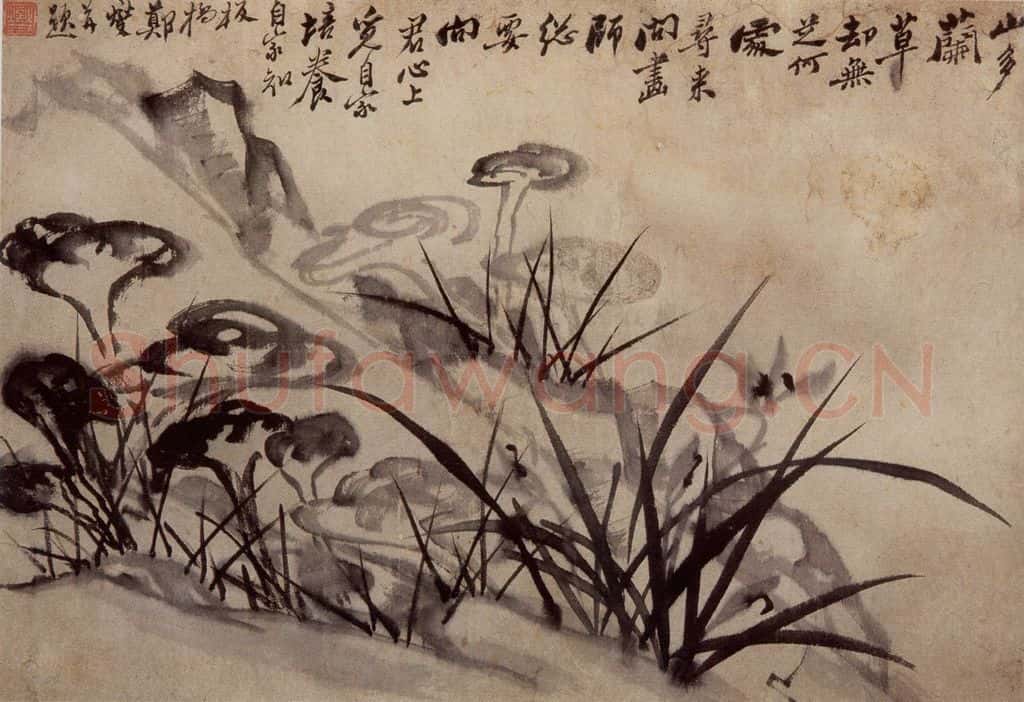 山多
蘭
草
却無
芝何
處
尋來
問畫
師
總
要
向
君心上
覓自家
培養
自家知
板
橋
鄭
燮
并
題
Shufawang.CN